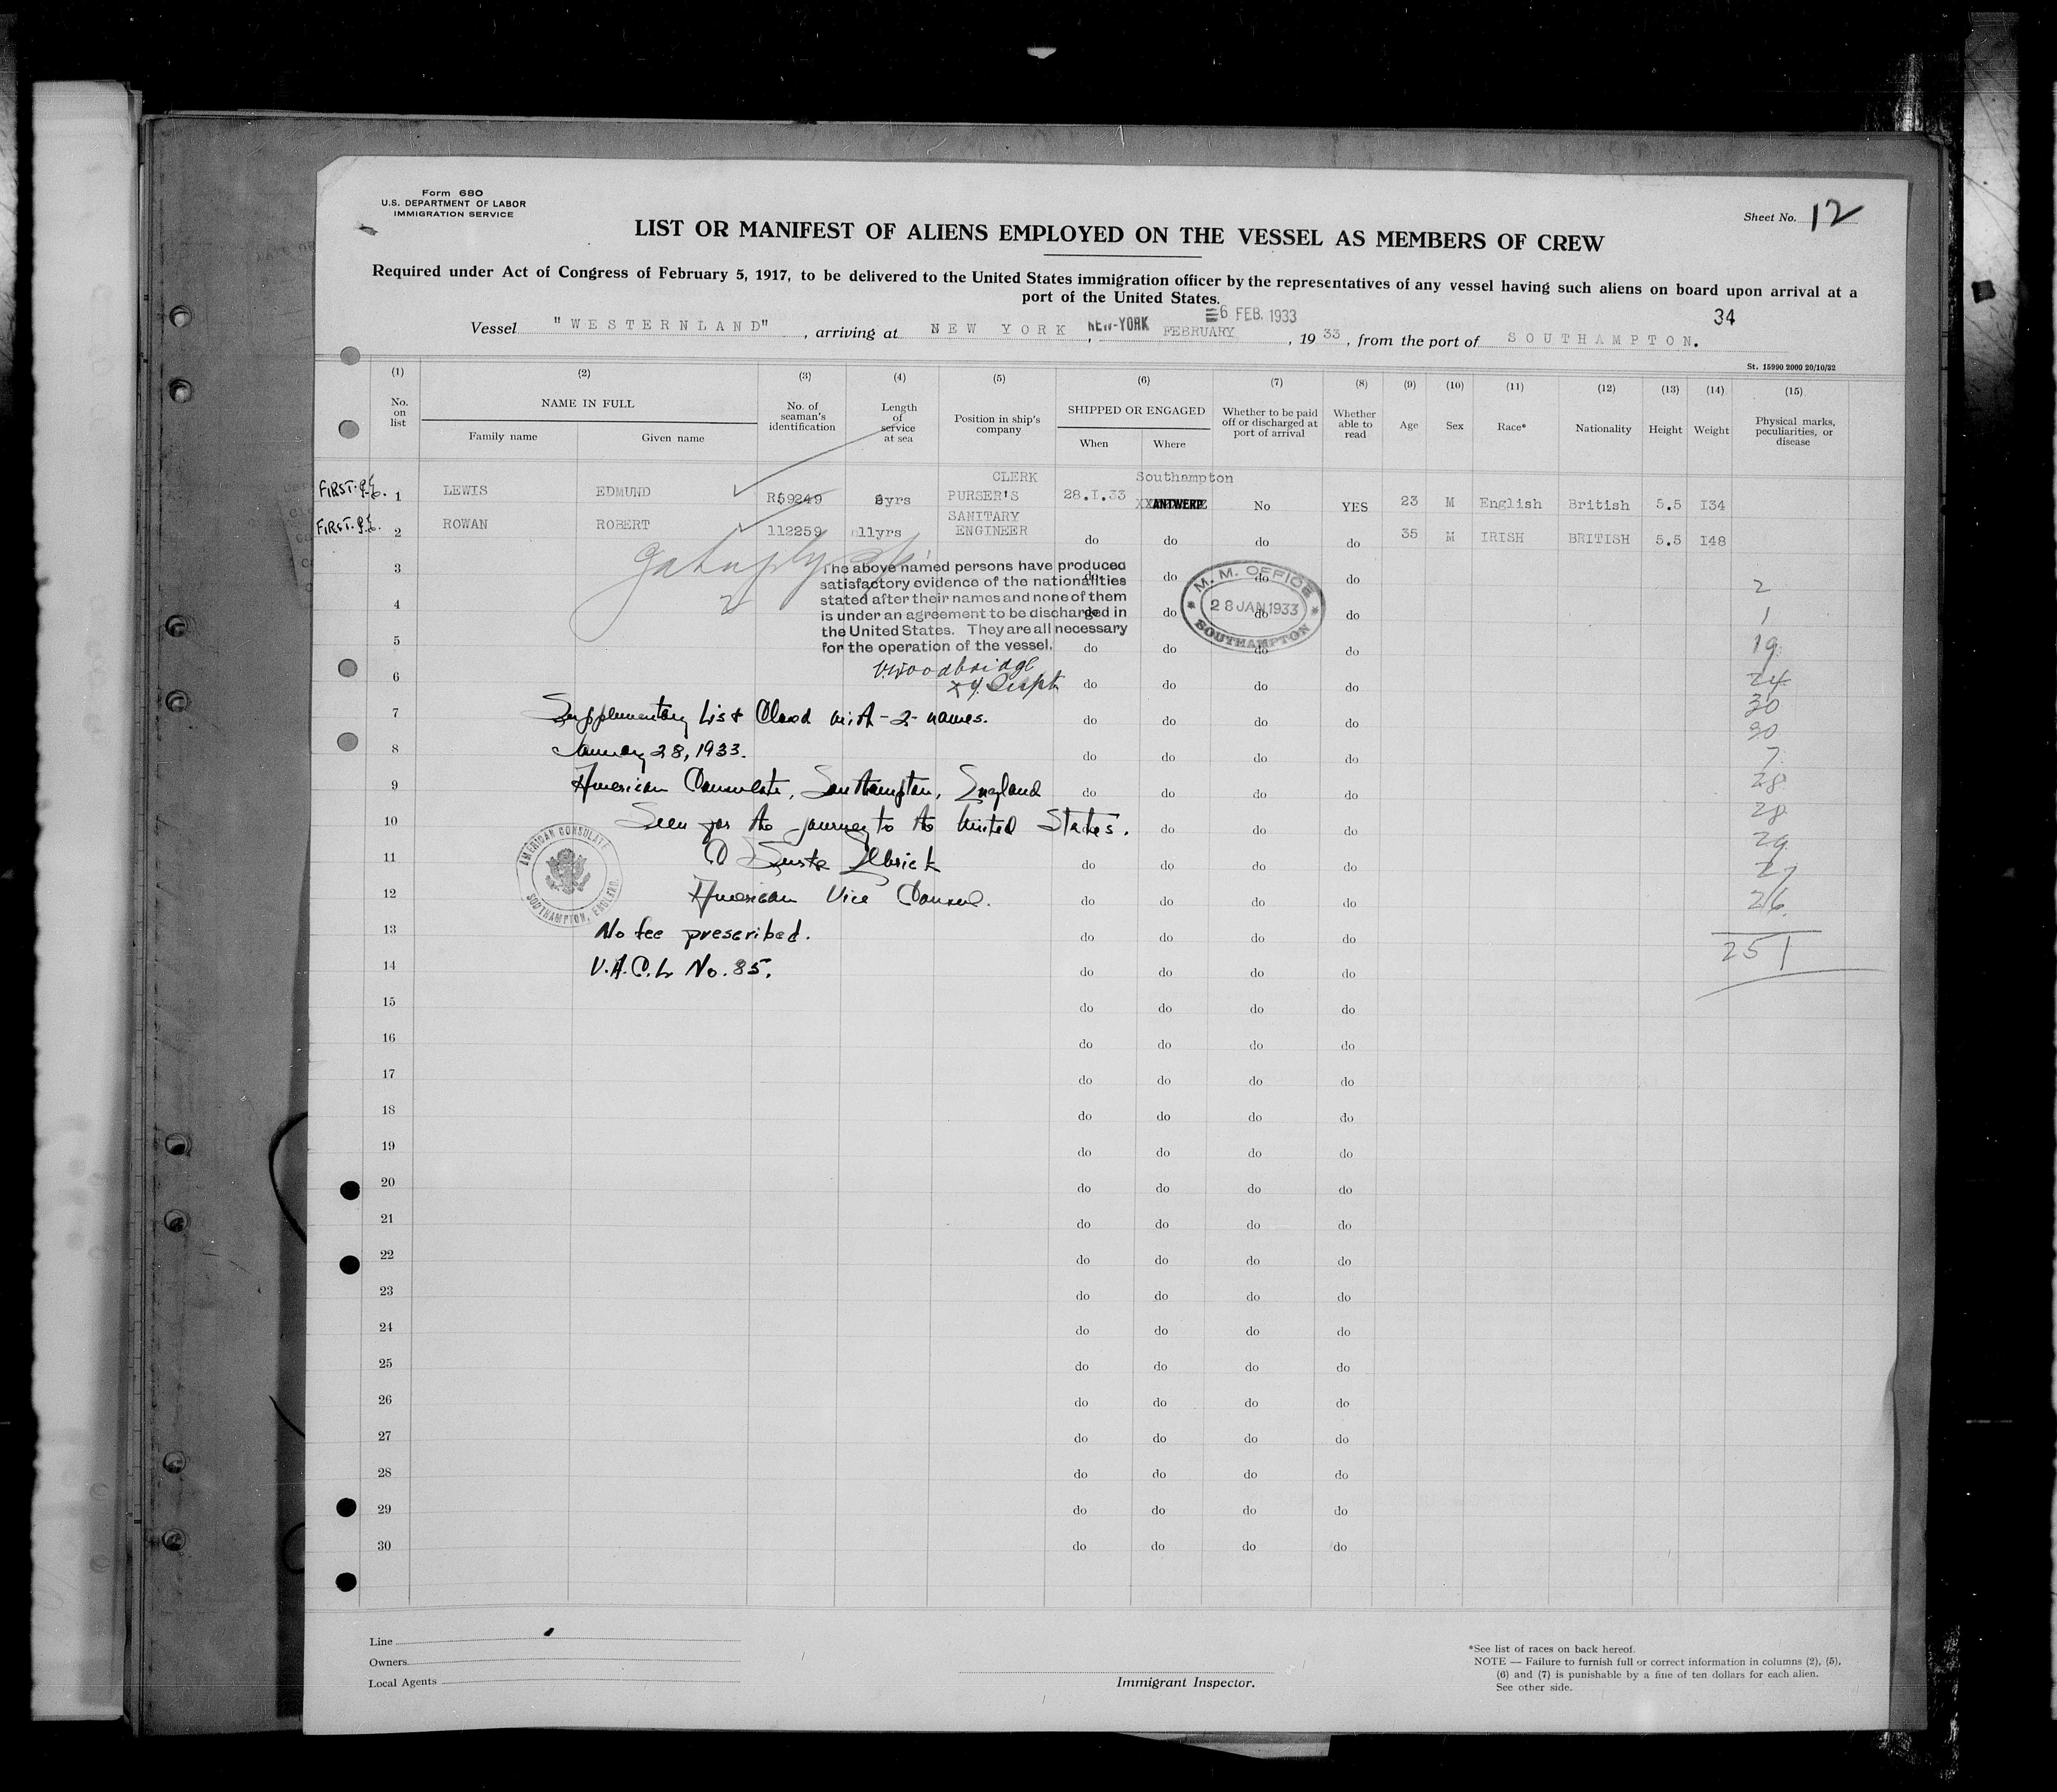 Form 680
U.S. DEPARTMENT OF LABOR
IMMIGRATION SERVICE
Sheet No. 12
LIST OR MANIFEST OF ALIENS EMPLOYED ON THE VESSEL AS MEMBERS OF CREW
Required under Act of Congress of February 5, 1917, to be delivered to the United States immigration officer by the representatives of any vessel having such aliens on board upon arrival at a
port of the United States.
6 FEB. 1933
34
Vessel "WESTERNLAND", arriving at NEW YORK, NEW-YORK FEBRUARY, 1933, from the port of SOUTHAMPTON.
St. 15990 2000 20/10/32
(1) (2) (3) (4) (5) (6) (7) (8) (9) (10) (11) (12) (13) (14) (15)
No. on list NAME IN FULL No. of seaman's identification Length of service at sea Position in ship's company SHIPPED OR ENGAGED Whether to be paid off or discharged at port of arrival Whether able to read Age Sex Race* Nationality Height Weight Physical marks, peculiarities, or disease
Family name Given name When Where
CLERK Southampton
FIRST. 1 LEWIS EDMUND R59249 yrs PURSER'S 28.I.33 ANTWERP No YES 23 M English British 5.5 I34
SANITARY
FIRST. 2 ROWAN ROBERT 112259 11yrs ENGINEER do do do do 35 M IRISH BRITISH 5.5 I48
The above named persons have produced
satisfactory evidence of the nationalities
stated after their names and none of them
is under an agreement to be discharged in
the United States. They are all necessary
for the operation of the vessel.
M. M. OFFICE
28 JAN 1933
SOUTHAMPTON
3 do do do do
4 do do do do 2
5 do do do do 1
19
V. Woodbridge
6 do do do do 24
30
7 Supplementary List Closed with -2- names. do do do do 30
8 January 28, 1933. do do do do 7
9 American Consulate, Southampton, England do do do do 28
10 Seen for the journey to the United States. do do do 28
29
11 do do do do 27
12 American Vice Consul. do do do do 26
AMERICAN CONSULATE
SOUTHAMPTON, ENGLAND.
13 No fee prescribed. do do do do 251
14 V.A.C.L No. 85. do do do do
15 do do do do
16 do do do do
17 do do do do
18 do do do do
19 do do do do
20 do do do do
21 do do do do
22 do do do do
23 do do do do
24 do do do do
25 do do do do
26 do do do do
27 do do do do
28 do do do do
29 do do do do
30 do do do do
Line
Owners
Local Agents
Immigrant Inspector.
*See list of races on back hereof.
NOTE — Failure to furnish full or correct information in columns (2), (5),
(6) and (7) is punishable by a fine of ten dollars for each alien.
See other side.